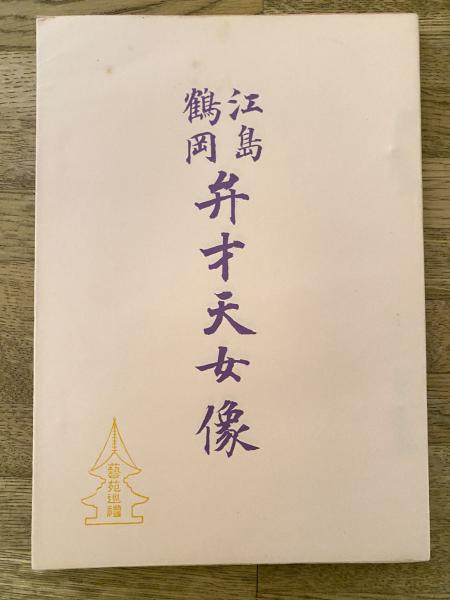 江島
鶴岡
弁才天女像
藝苑巡禮